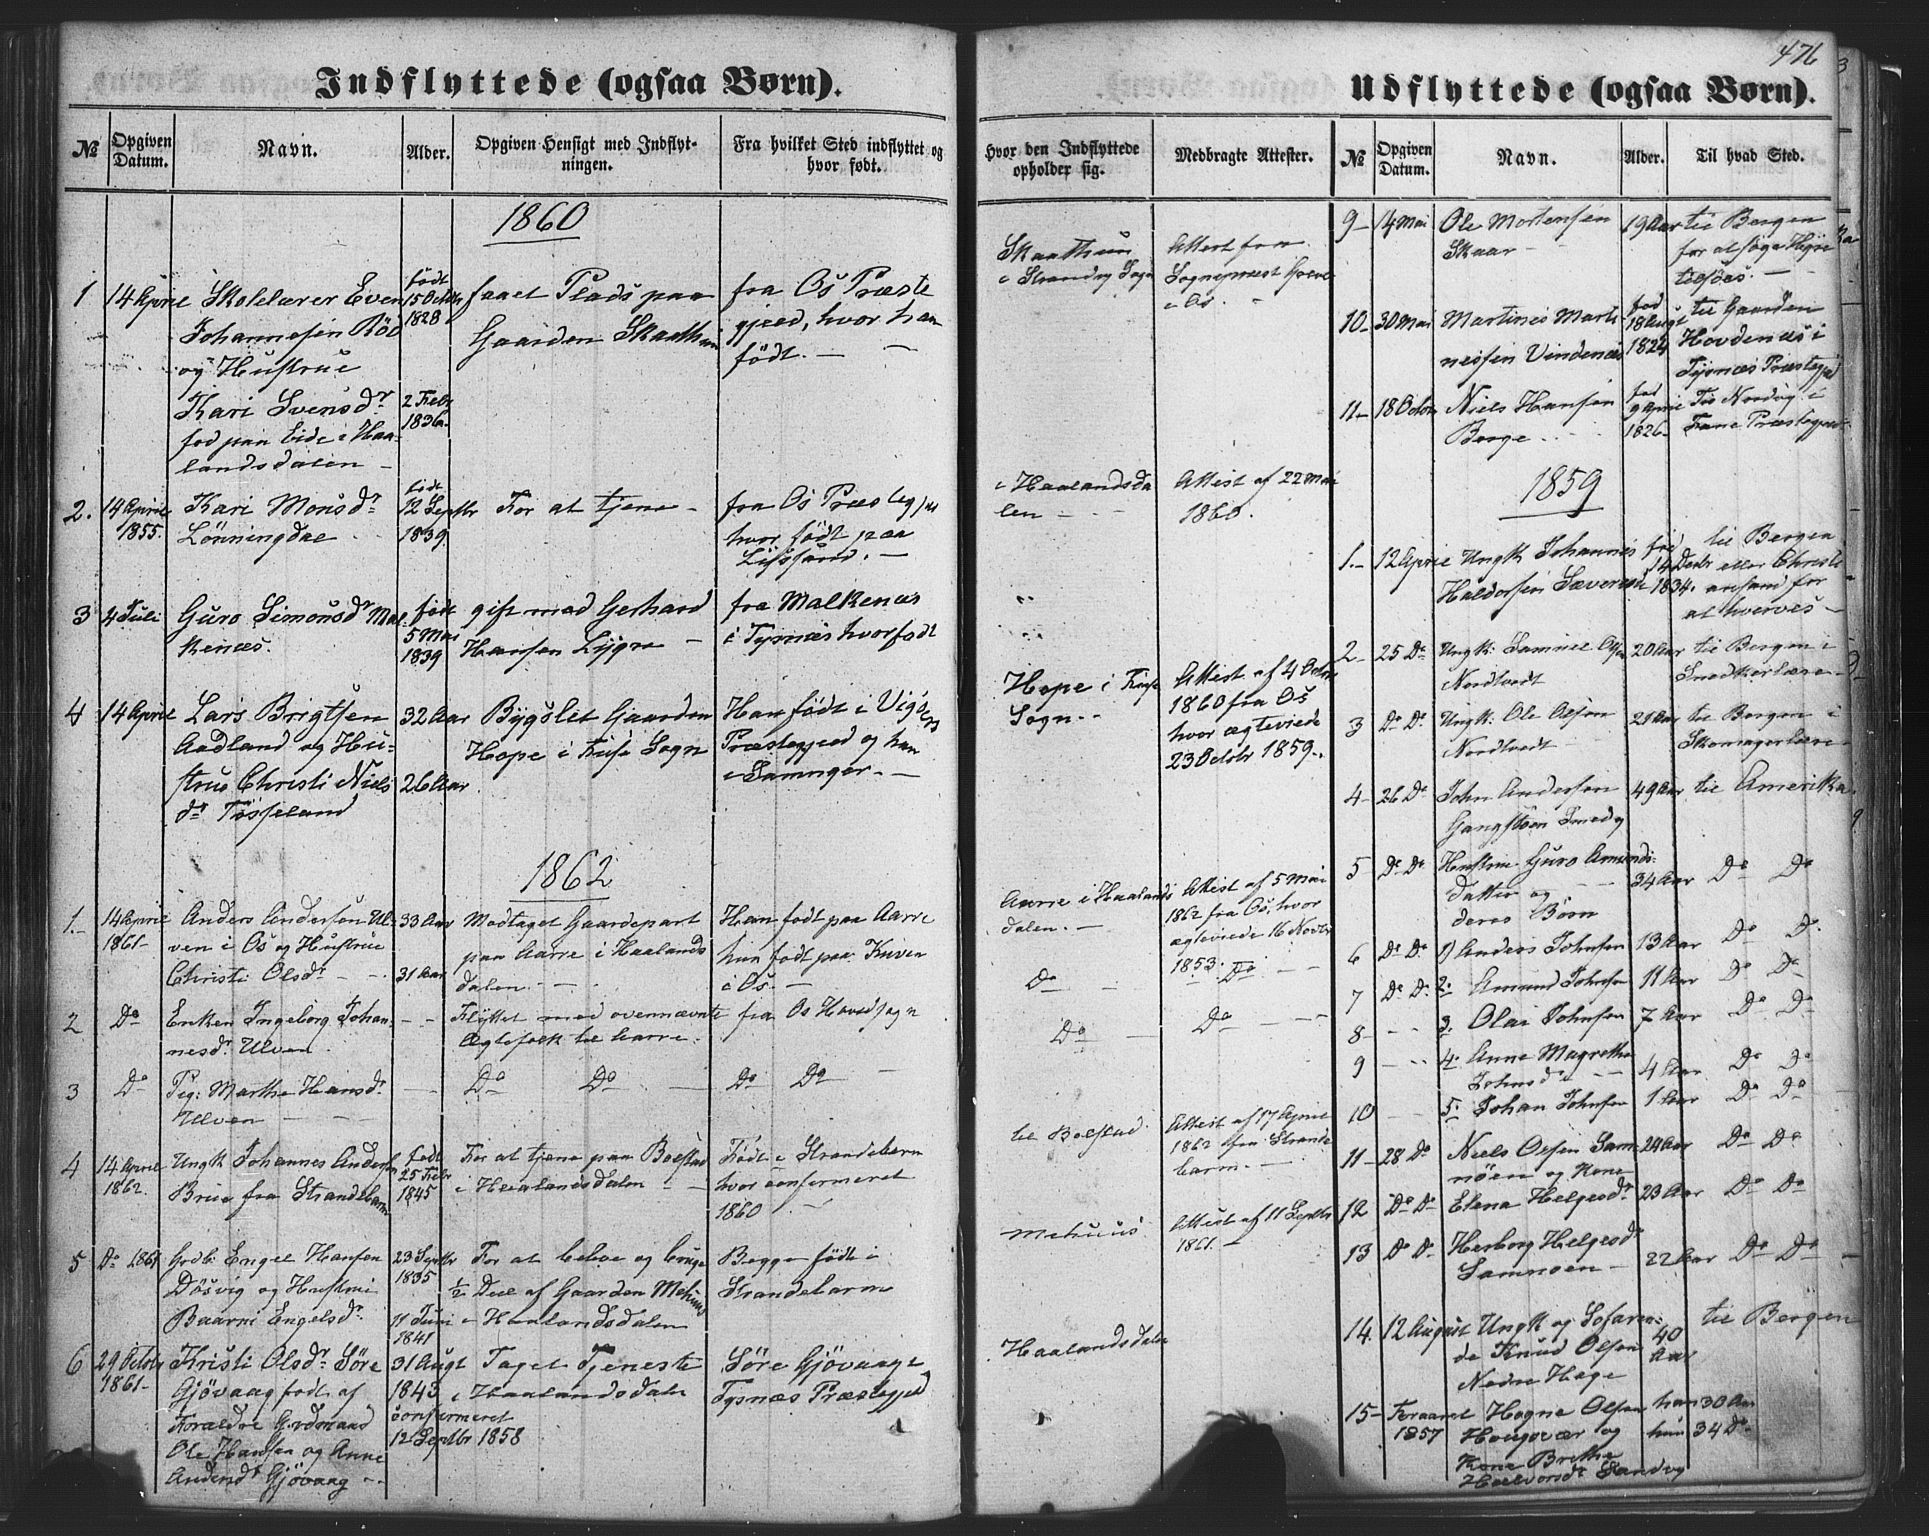 476
Indflyttede (ogsaa Børn).
№
Opgiven Datum.
Navn.
Alder.
Opgiven Hensigt med Indflyt-
ningen.
Fra hvilket Sted indflyttet og
hvor født.
Hvor den Indflyttede
opholder sig.
Medbragte Attester.
1860
1 14 April Skolelærer Even født 15 Octbr 1828 faaet Plads paa fra Os Præste
Johannesen Röd Gaarden Skaathun gjeld, hvor han
og Hustrue født. —
Kari Svensdr 2 Febr 1836
fød paa Eide i Haa-
landsdalen —
Skaathun
i Strandvig Sogn
Attest fra
Sognepræst
i Os.
2. 14 April 1855. Kari Monsdr født 12 Septbr 1839 For at tjene — fra Os Præstegj
Lønningdal hvor født paa
Lissand. —
i Haalandsda
len —
Attest af 22 Mai
1860.
3 4 Juli Guro Simonsdr Mal- født 5 Mai 1839 gift med Gerhard fra Malkenæs
kenæs. Hansen Lygre — i Tysnæs hvor født
4 14 April Lars Brigtsen 32 Aar Bygslet Gaarden Han født i Vigørs
Aadland og Hu- Hope i Fuse Sogn Præstegjeld og hun
strue Christi Niels 26 Aar. i Samnger. —
dr Tøsseland
Hope i Fuse
Sogn. —
Attest af 4 Octbr
1860 fra Os
hvor ægteviede
23 Octobr 1859.
1862
1. 14 April 1861 Anders Anderson Ul- 33 Aar Modtaget Gaardepart Han født paa Aarre
ven i Os og Hustrue paa Aarre i Haalands hun født paa Kuven
Christi Olsdr — 31 Aar dalen — i Os. —
Aarre i Haalands
dalen. —
Attest af 5 Mai
1862 fra Os, hvor
ægteviede 16 Novbr
1853.
2 Do Enken Ingeborg Johan- — Flyttet med ovennævnte fra Os Hovedsogn
nesdr Ulven. Ægtefolk til Aarre.
Do — Do —
3 Do Pig: Marthe Hansdr — Do Do — Do Do —
Ulven —
Do — Do —
4 14 April 1862. Ungk Johannes Andersen født 25 Febr 1845 For at tjene paa Bolstad Født i Strandebarm
Brue fra Strandebarm i Haalandsdalen — hvor confirmeret
1860
til Bolstad
Attest af 17 April
1862 fra Strande
barm. —
5 Do 1861 Grdb: Engel Hansen 23 Septbr 1835 For at beboe og bruge Begge født i
Døsvig og Hustrue ½ Deel af Gaarden Mehuus Strandebarm
Baarni Engelsdr 11 Juni 1841 i Haalandsdalen
Mehuus
Attest af 11 Septbr
1861. —
6 29 Octobr 1861 Kristi Olsdr Søre 31 Augt Taget Tjeneste Søre Gjøvaag
Gjøvaag født af 1843 i Haalandsdalen Tysnæs Præstegjeld
Forældre Grdmand confirmeret
Ole Hansen og Anne 12 Septbr 1858
Andersdr Gjøvaag —
Haalandsdalen
Udflyttede (ogsaa Børn).
№
Opgiven
Datum.
Navn.
Alder.
Til hvad Sted.
9 — 14 Mai Ole Mortensen 19 Aar til Bergen
Skaar — for at søge Hyre
tilsøes. —
10 — 30 Mai Martines Marti- fød 18 Augt 1824 til Gaarden
nessen Vindenæs Hovdenæs i
Tysnæs Præstegjeld
11 — 18 Octbr Niels Hansen fød 9 April 1826 Til Nordvig i
Berge Fane Præstegjeld
1859
1. — 12 April Ungk Johannes fød 14 Decbr 1834 til Bergen
Haldorsen Sævereid eller Christi
ansand for
at hverves —
2 — 25 Do Ungk: Samuel Olsen 20 Aar til Bergen i
Nordtvedt Snedkerlære —
3 Do Do Ungk: Ole Olsen 21 Aar til Bergen i
Nordtvedt Skomagerlære —
4 — 26 Do John Andersen 49 Aar til Amerika
Gangstøen Smed og
5 Do Do Hustrue Guro Amunds- 34 Aar Do Do
datter og
deres Børn
6 Do Do 1) Anders Johnsen 13 Aar Do Do
7 Do Do 2. Amund Johnsen 11 Aar Do Do
8 — 3. Olai Johnsen 7 Aar Do Do
9 — 4. Anne Magrethe 4 Aar Do Do
Johnsdr
10 — 5. Johan Johnsen 1 Aar Do Do
11 — 28 Do Niels Olsen Sam- 24 Aar Do Do
nøen og Kone
12 Do Do Elena Helgesdr 23 Aar Do Do
13 Do Do Herborg Helgesdr 22 Aar Do Do
Samnøen —
14. 12 August Ungk og Sofarn- 40 Aar til Bergen
de Knud Olsen
Nedre Hage
15 — Foraaret 1857 Hogne Olsen han 30 Aar
Hougsvær og hun 34 Do
Kone Brithe
Halvorsdr Sandvig